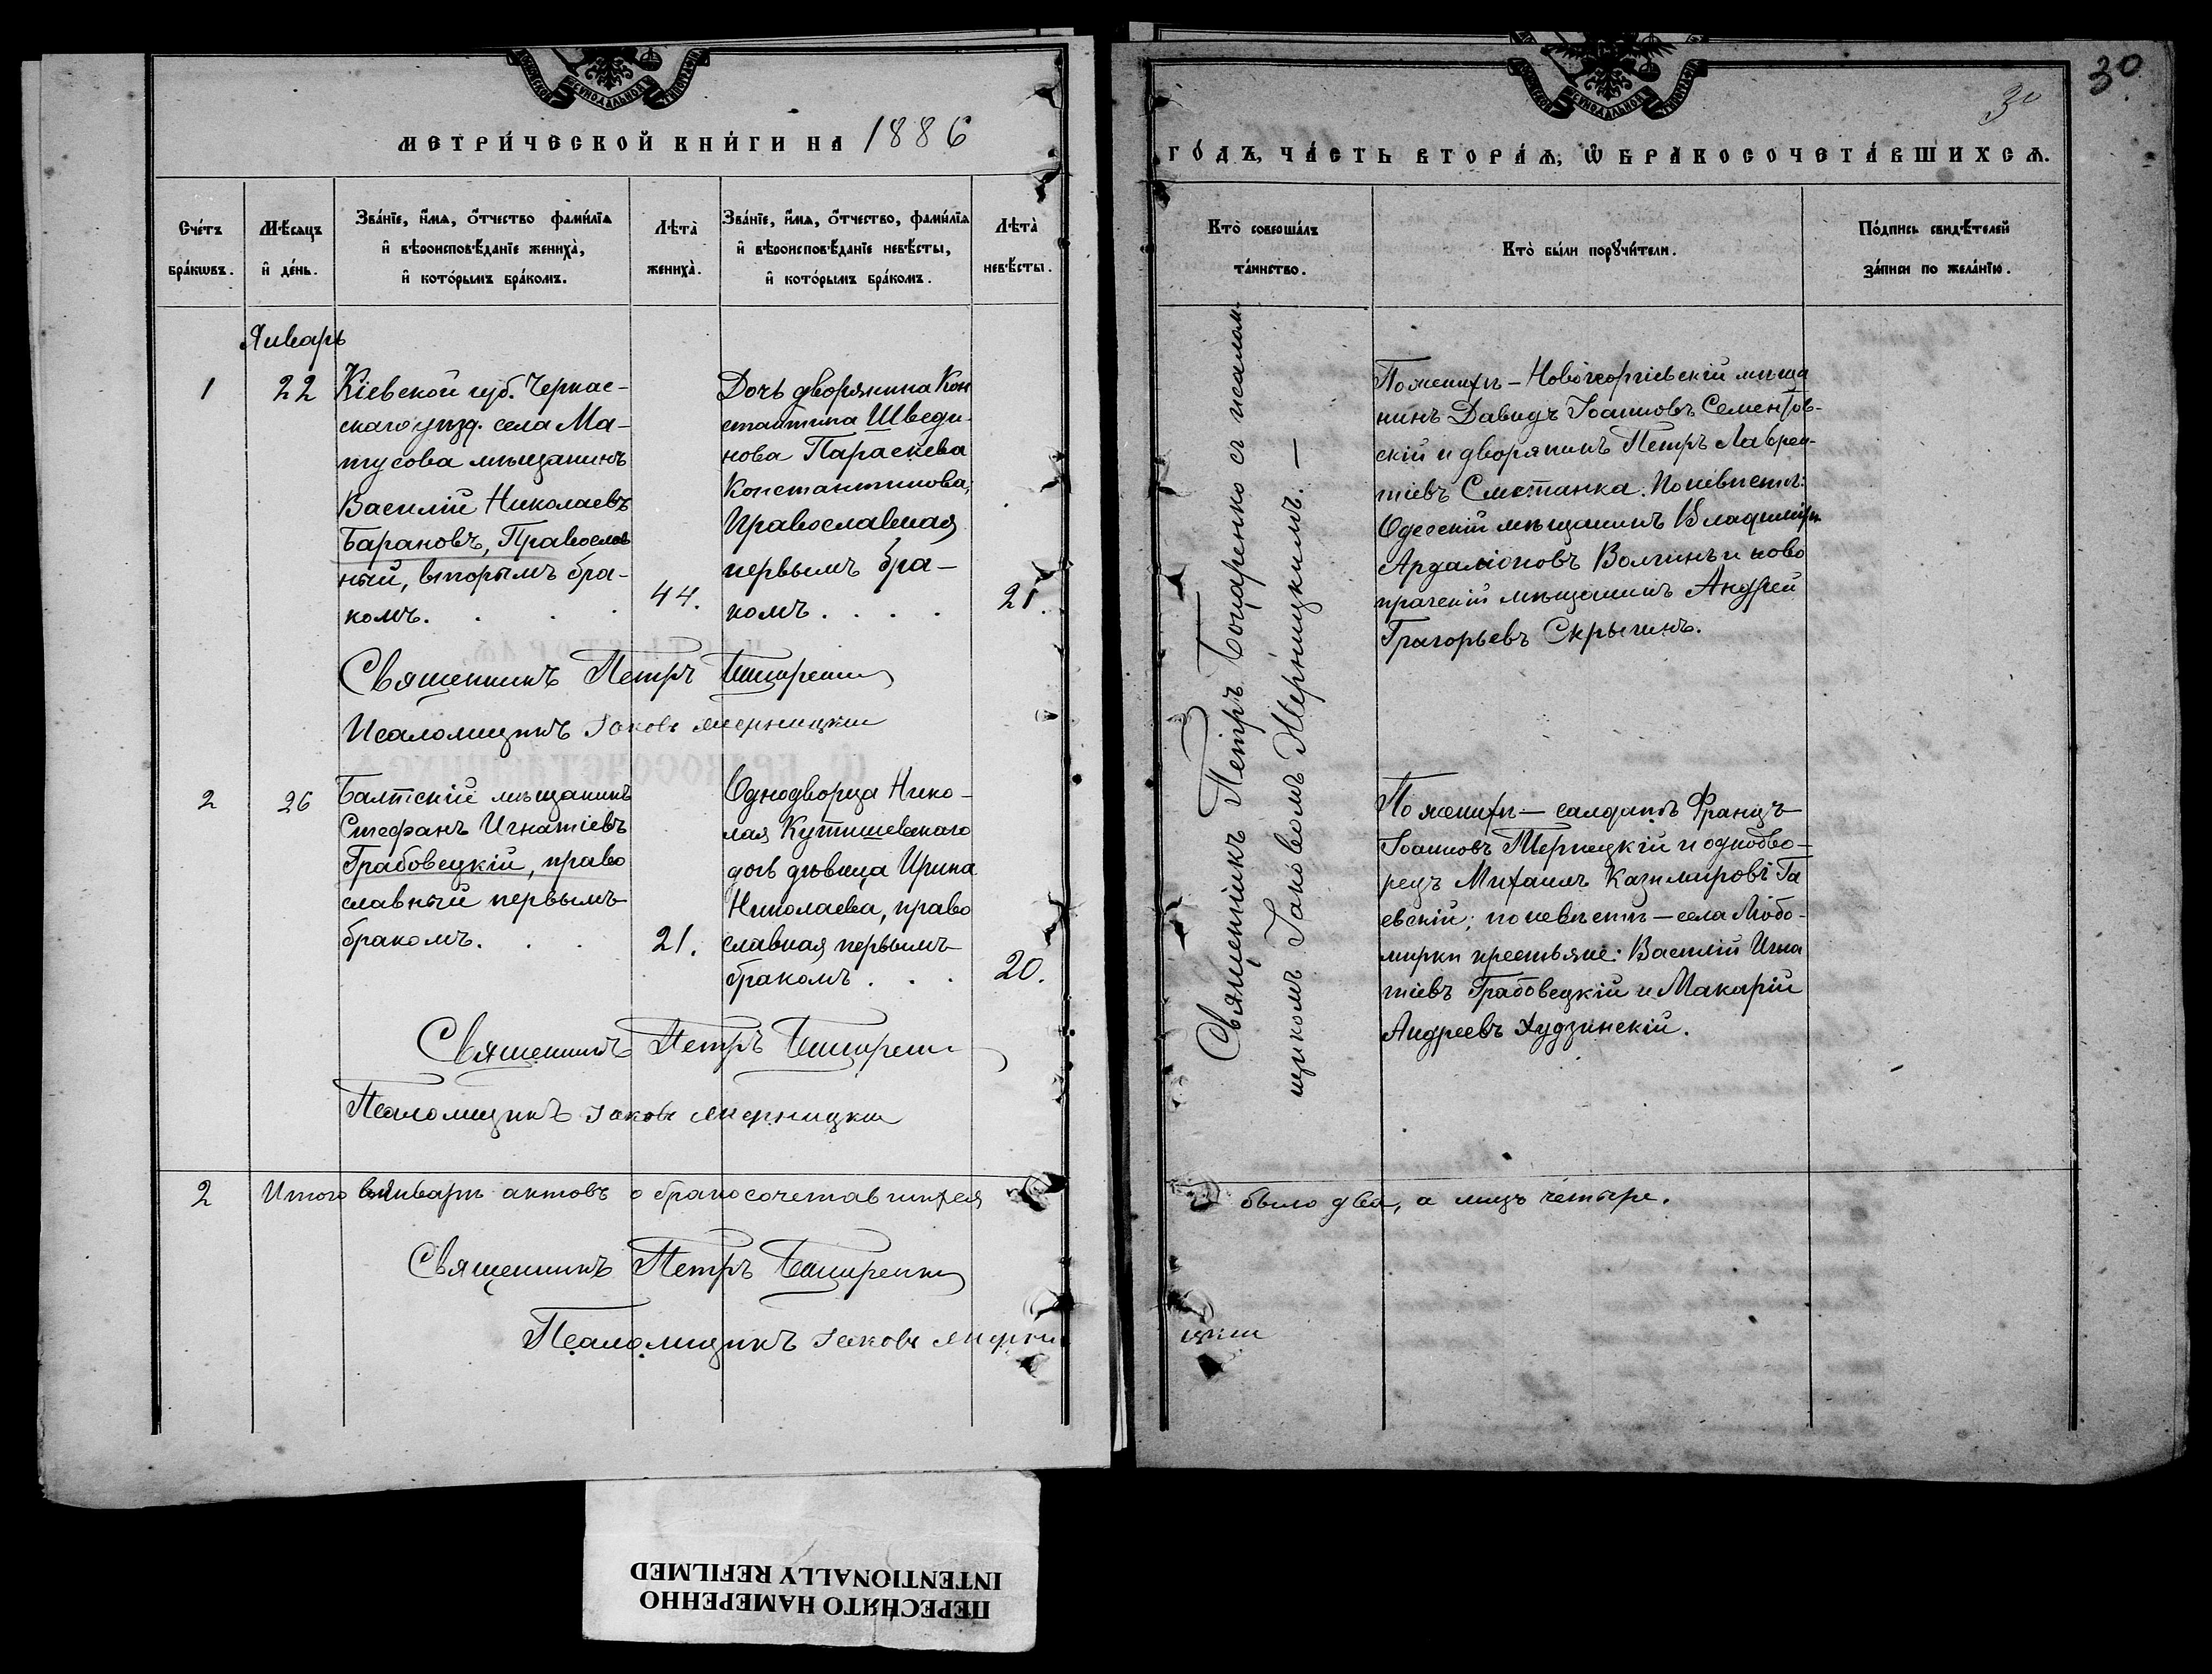 МЕТРИЧЕСКОЙ КНИГИ НА 1886
Счетъ браковъ.
Мѣсяцъ и день.
Званіе, имя, отчество фамилія и вѣроисповѣданіе жениха, и которымъ бракомъ.
Лѣта жениха.
Званіе, имя, отчество, фамилія и вѣроисповѣданіе невѣсты, и которымъ бракомъ.
Лѣта невѣсты.
Январь
1
22
Кіевской губ. Черкас-
скаго уѣзд. села Ма-
тусова мѣщанинъ
Василій Николаевъ
Барановъ, Православ
ный, вторымъ бра-
комъ.
44.
Дочь дворянина Кон
стантина Шведи-
нова Параскева
Константинова,
Православная
первымъ бра-
комъ . . . .
21.
Священникъ Петръ
Псаломщикъ Іаковъ Мерницкій
2
26
Балтскій мѣщанинъ
Стефанъ Игнатіевъ
Грабовецкій, право
славный первымъ
бракомъ. . .
21.
Однодворца Нико-
лая Кутишевскаго
дочь дѣвица Ирина
Николаева, право
славная первымъ
бракомъ . . .
20.
Священникъ Петръ
Псаломщикъ Іаковъ Мерницкій
2 Итого въ Январѣ актовъ о бракосочетавшихся
Священникъ Петръ
Псаломщикъ Іаковъ Мерни
30
30
ГОДЪ, ЧАСТЬ ВТОРАЯ, Ѡ БРАКОСОЧЕТАВШИХСЯ.
Кто совершалъ таинство.
Кто были поручители.
Подпись свидѣтелей записи по желанію.
Священникъ Петръ Боцаренко съ псалом-
щикомъ Іаковомъ Мерницкимъ. —
По женихѣ – Новогеоргіевскій мѣща
нинъ Давидъ Іоанновъ Сементов-
скій и дворянинъ Петръ Лаврен-
тіевъ Сметанка. По невѣстѣ:
Одесскій мѣщанинъ Владиміръ
Ардаліоновъ Волчинъ и ново
прагскій мѣщанинъ Андрей
Григорьевъ Скрыгинъ.
По женихѣ — салдатъ Францъ
Іоанновъ Терлецкій и однодво-
рецъ Михаилъ Казиміровъ Га
евскій; по невѣстѣ — села Любо-
мирки крестьяне: Василій Игна
тіевъ Грабовецкій и Макарій
Андреевъ Худзинскій.
было два, а лицъ четыре.
цкій
ПЕРЕСНЯТО НАМЕРЕННО
INTENTIONALLY REFILMED